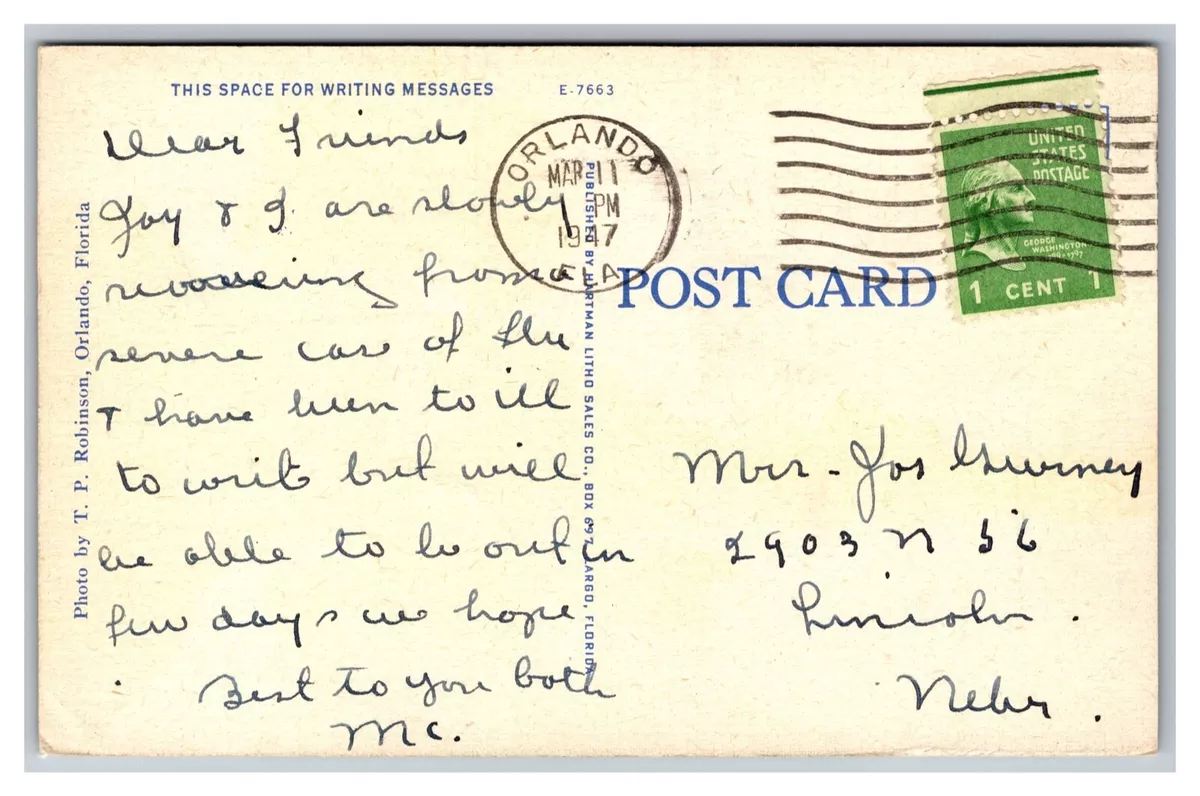 THIS SPACE FOR WRITING MESSAGES
E-7663
Dear Friends
Joy & I are slowly
recovering from a
severe case of flu
& have been to ill
to write but will
be able to be out in
few days we hope
Best to you both
Mc.
Photo by T. P. Robinson, Orlando, Florida
PUBLISHED BY HARTMAN LITHO SALES CO., BOX 697, LARGO, FLORIDA
ORLANDO
MAR 11
PM
1947
FLA.
UNITED
STATES
POSTAGE
GEORGE
WASHINGTON
1 CENT 1
POST CARD
Mrs - Jos Gurney
2903 N 56
Lincoln .
Nebr .